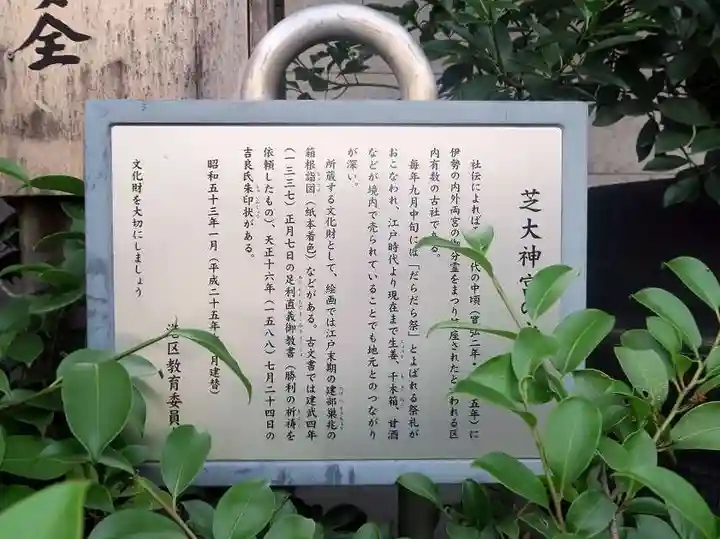 芝大神宮の
社伝によれば 代の中頃(寛弘二年 五年)に
伊勢の内外両宮の御分霊をまつり 座されたと われる区
内有数の古社である。
毎年九月中旬には「だらだら祭」とよばれる祭礼が
おこなわれ、江戸時代より現在まで生姜、千木箱、甘酒
などが境内で売られていることでも地元とのつながり
が深い。
所蔵する文化財として、絵画では江戸末期の建部巣兆の
箱根詣図(紙本着色)などがある。古文書では建武四年
(一三三七)正月七日の足利直義御教書(勝利の祈祷を
依頼したもの)、天正十六年(一五八八)七月二十四日の
吉良氏朱印状がある。
昭和五十三年一月(平成二十五年 月建替)
区教育委員
文化財を大切にしましょう
全